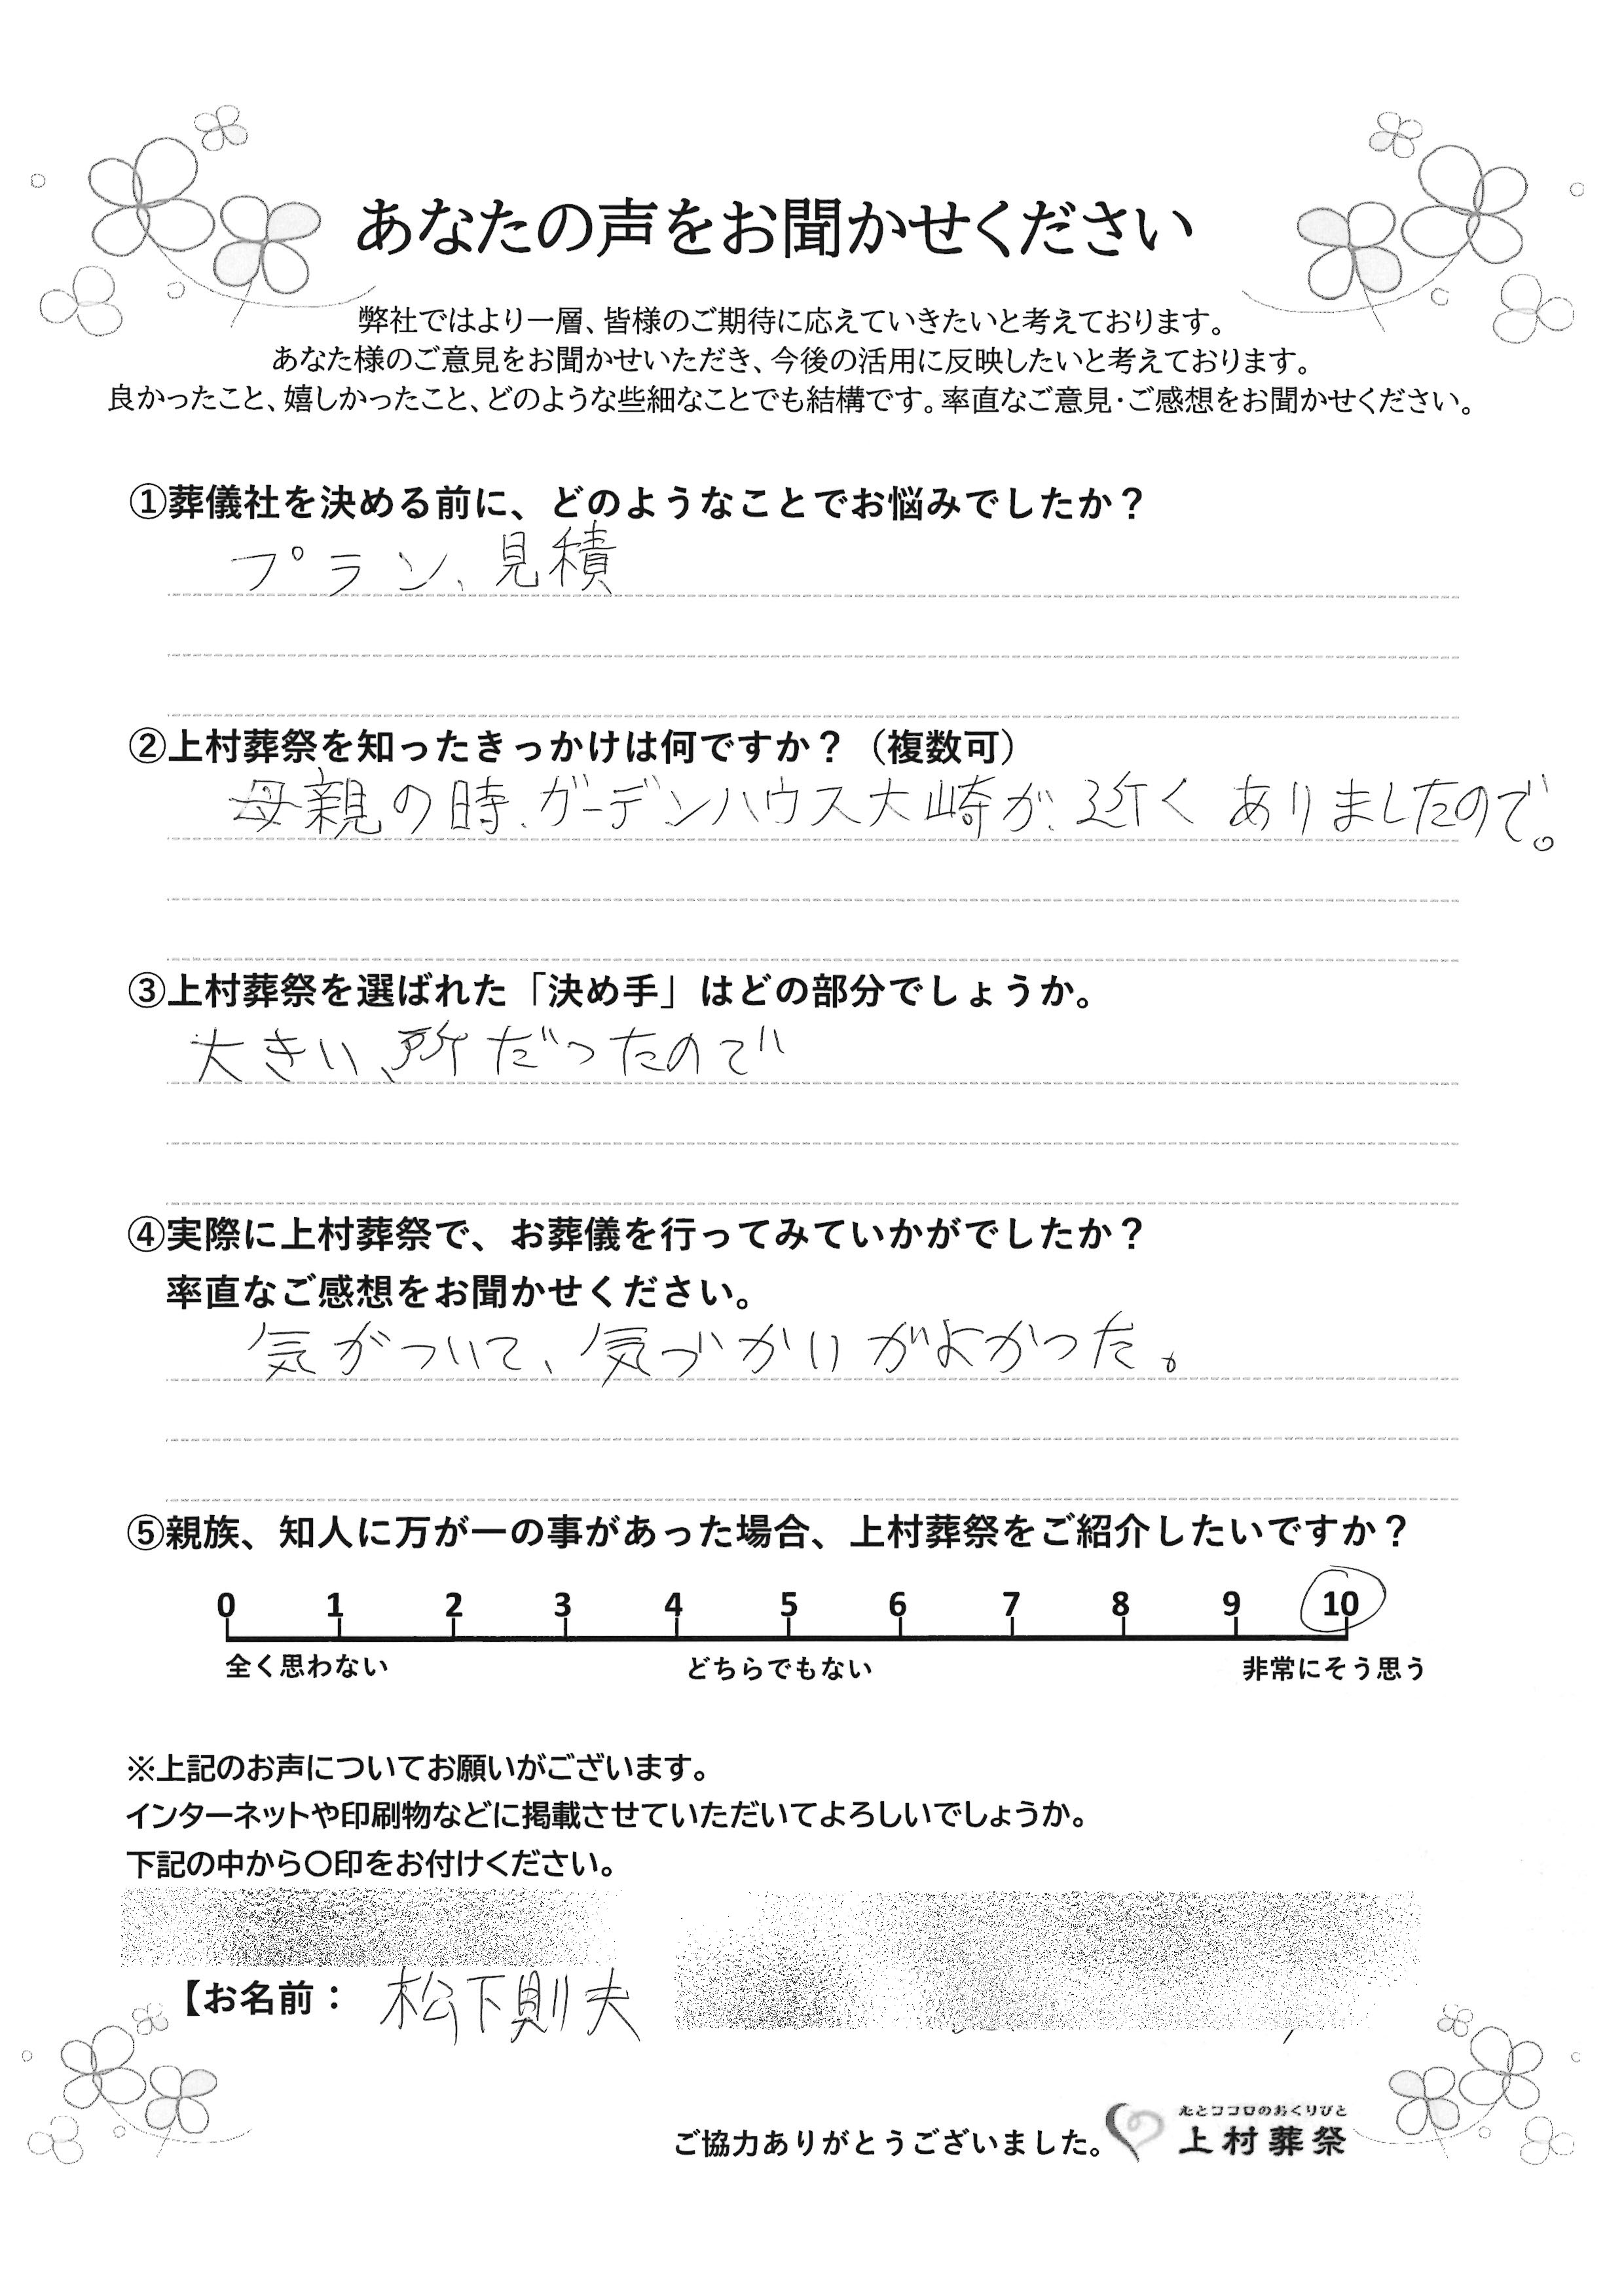 あなたの声をお聞かせください
弊社ではより一層、皆様のご期待に応えていきたいと考えております。
あなた様のご意見をお聞かせいただき、今後の活用に反映したいと考えております。
良かったこと、嬉しかったこと、どのような些細なことでも結構です。率直なご意見・ご感想をお聞かせください。
①葬儀社を決める前に、どのようなことでお悩みでしたか？
プラン、見積
②上村葬祭を知ったきっかけは何ですか？（複数可）
母親の時、ガーデンハウス大崎が、近くありましたので。
③上村葬祭を選ばれた「決め手」はどの部分でしょうか。
大きい、所だったので
④実際に上村葬祭で、お葬儀を行ってみていかがでしたか？
率直なご感想をお聞かせください。
気がついて、気づかいがよかった。
⑤親族、知人に万が一の事があった場合、上村葬祭をご紹介したいですか？
0 1 2 3 4 5 6 7 8 9 10
全く思わない どちらでもない 非常にそう思う
※上記のお声についてお願いがございます。
インターネットや印刷物などに掲載させていただいてよろしいでしょうか。
下記の中から〇印をお付けください。
【お名前： 松下則夫
心とココロのおくりびと
ご協力ありがとうございました。 上村葬祭